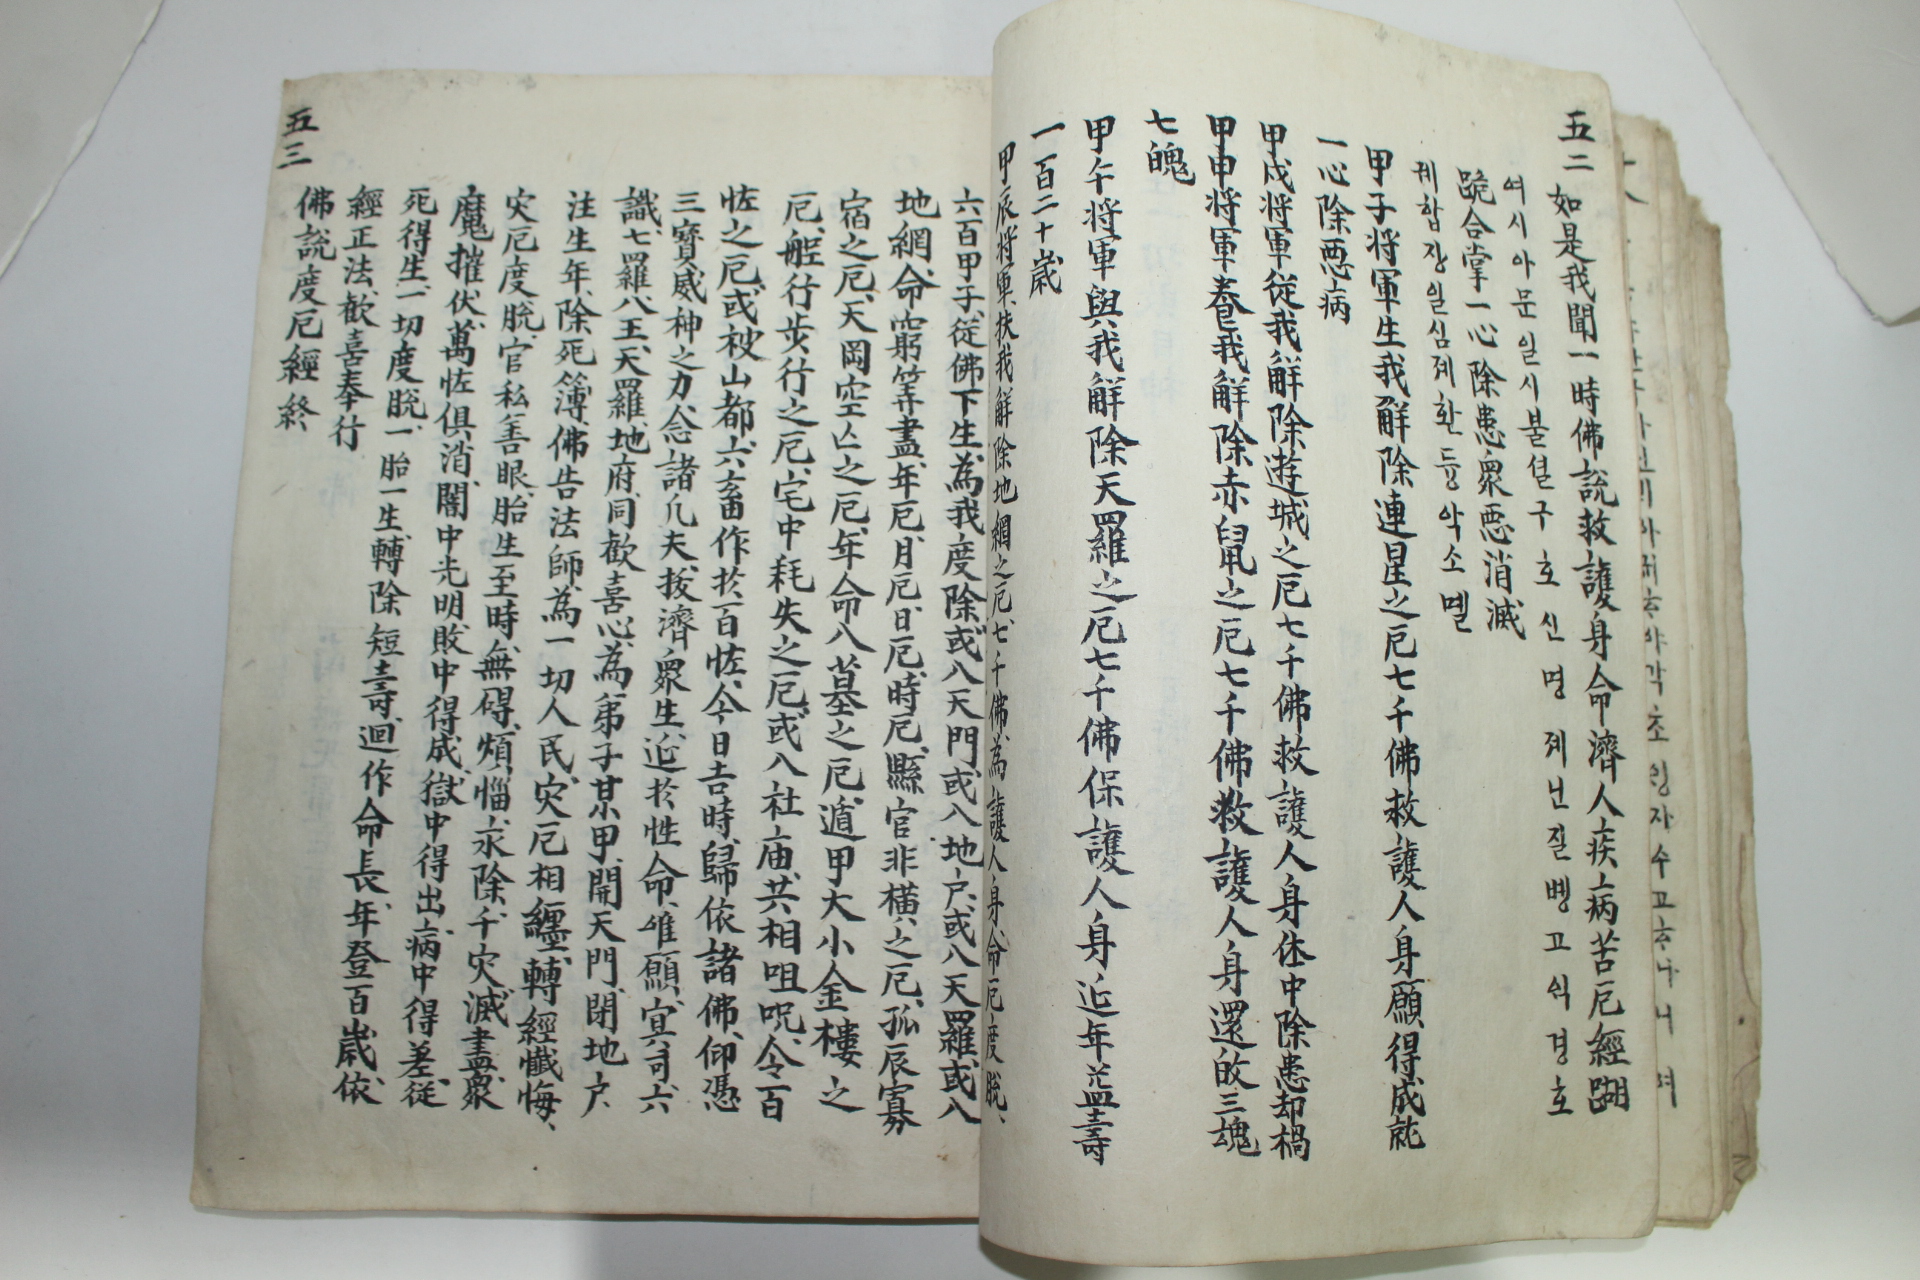 五二
如是我聞一時佛說救護身命濟人疾病苦厄經蹦
여시아문일시불셜구호신명졔닌질병고익경호
跪合掌一心除患衆惡消滅
궤합장일심졔환듕악소멸
甲子将軍生我解除連星之厄七千佛救護人身願得成就
一心除惡病
甲戌将軍從我解除遊城之厄七千佛救護人身休中除患却禍
甲申将軍眷我解除赤鼠之厄七千佛救護人身還故三魂
七魄
甲午将軍與我解除天羅之厄七千佛保護人身近年益壽
一百二十歲
甲辰将軍扶我解除地網之厄七千佛為護人身命厄度脫
六百甲子從佛下生為我度除或八天門或八地戶或八天羅或八
地網命窮筭盡年厄月厄日厄時厄縣官非橫之厄孤辰寡
宿之厄天岡空亡之厄年命八墓之厄遁甲大小金樓之
厄舩行步行之厄宅中耗失之厄或八社庙共相咀呪令百
恠之厄或被山都六畜作於百恠今日吉時歸依諸佛仰憑
三寶威神之力念諸凡夫拔濟衆生近於性命唯願㝠司六
識七羅八王天羅地府同歡喜心為弟子某甲開天門閉地户
注生年除死簿佛告法師為一切人民灾厄相纏轉經懺悔
灾厄度脫官私善眼胎生至時無碍煩惱永除千灾滅盡衆
魔摧伏萬恠俱消闇中光明敗中得成獄中得出病中得差從
死得生一切度脫一胎一生轉除短壽迴作命長年登百歲依
經正法歡喜奉行
佛說度厄經終
五三